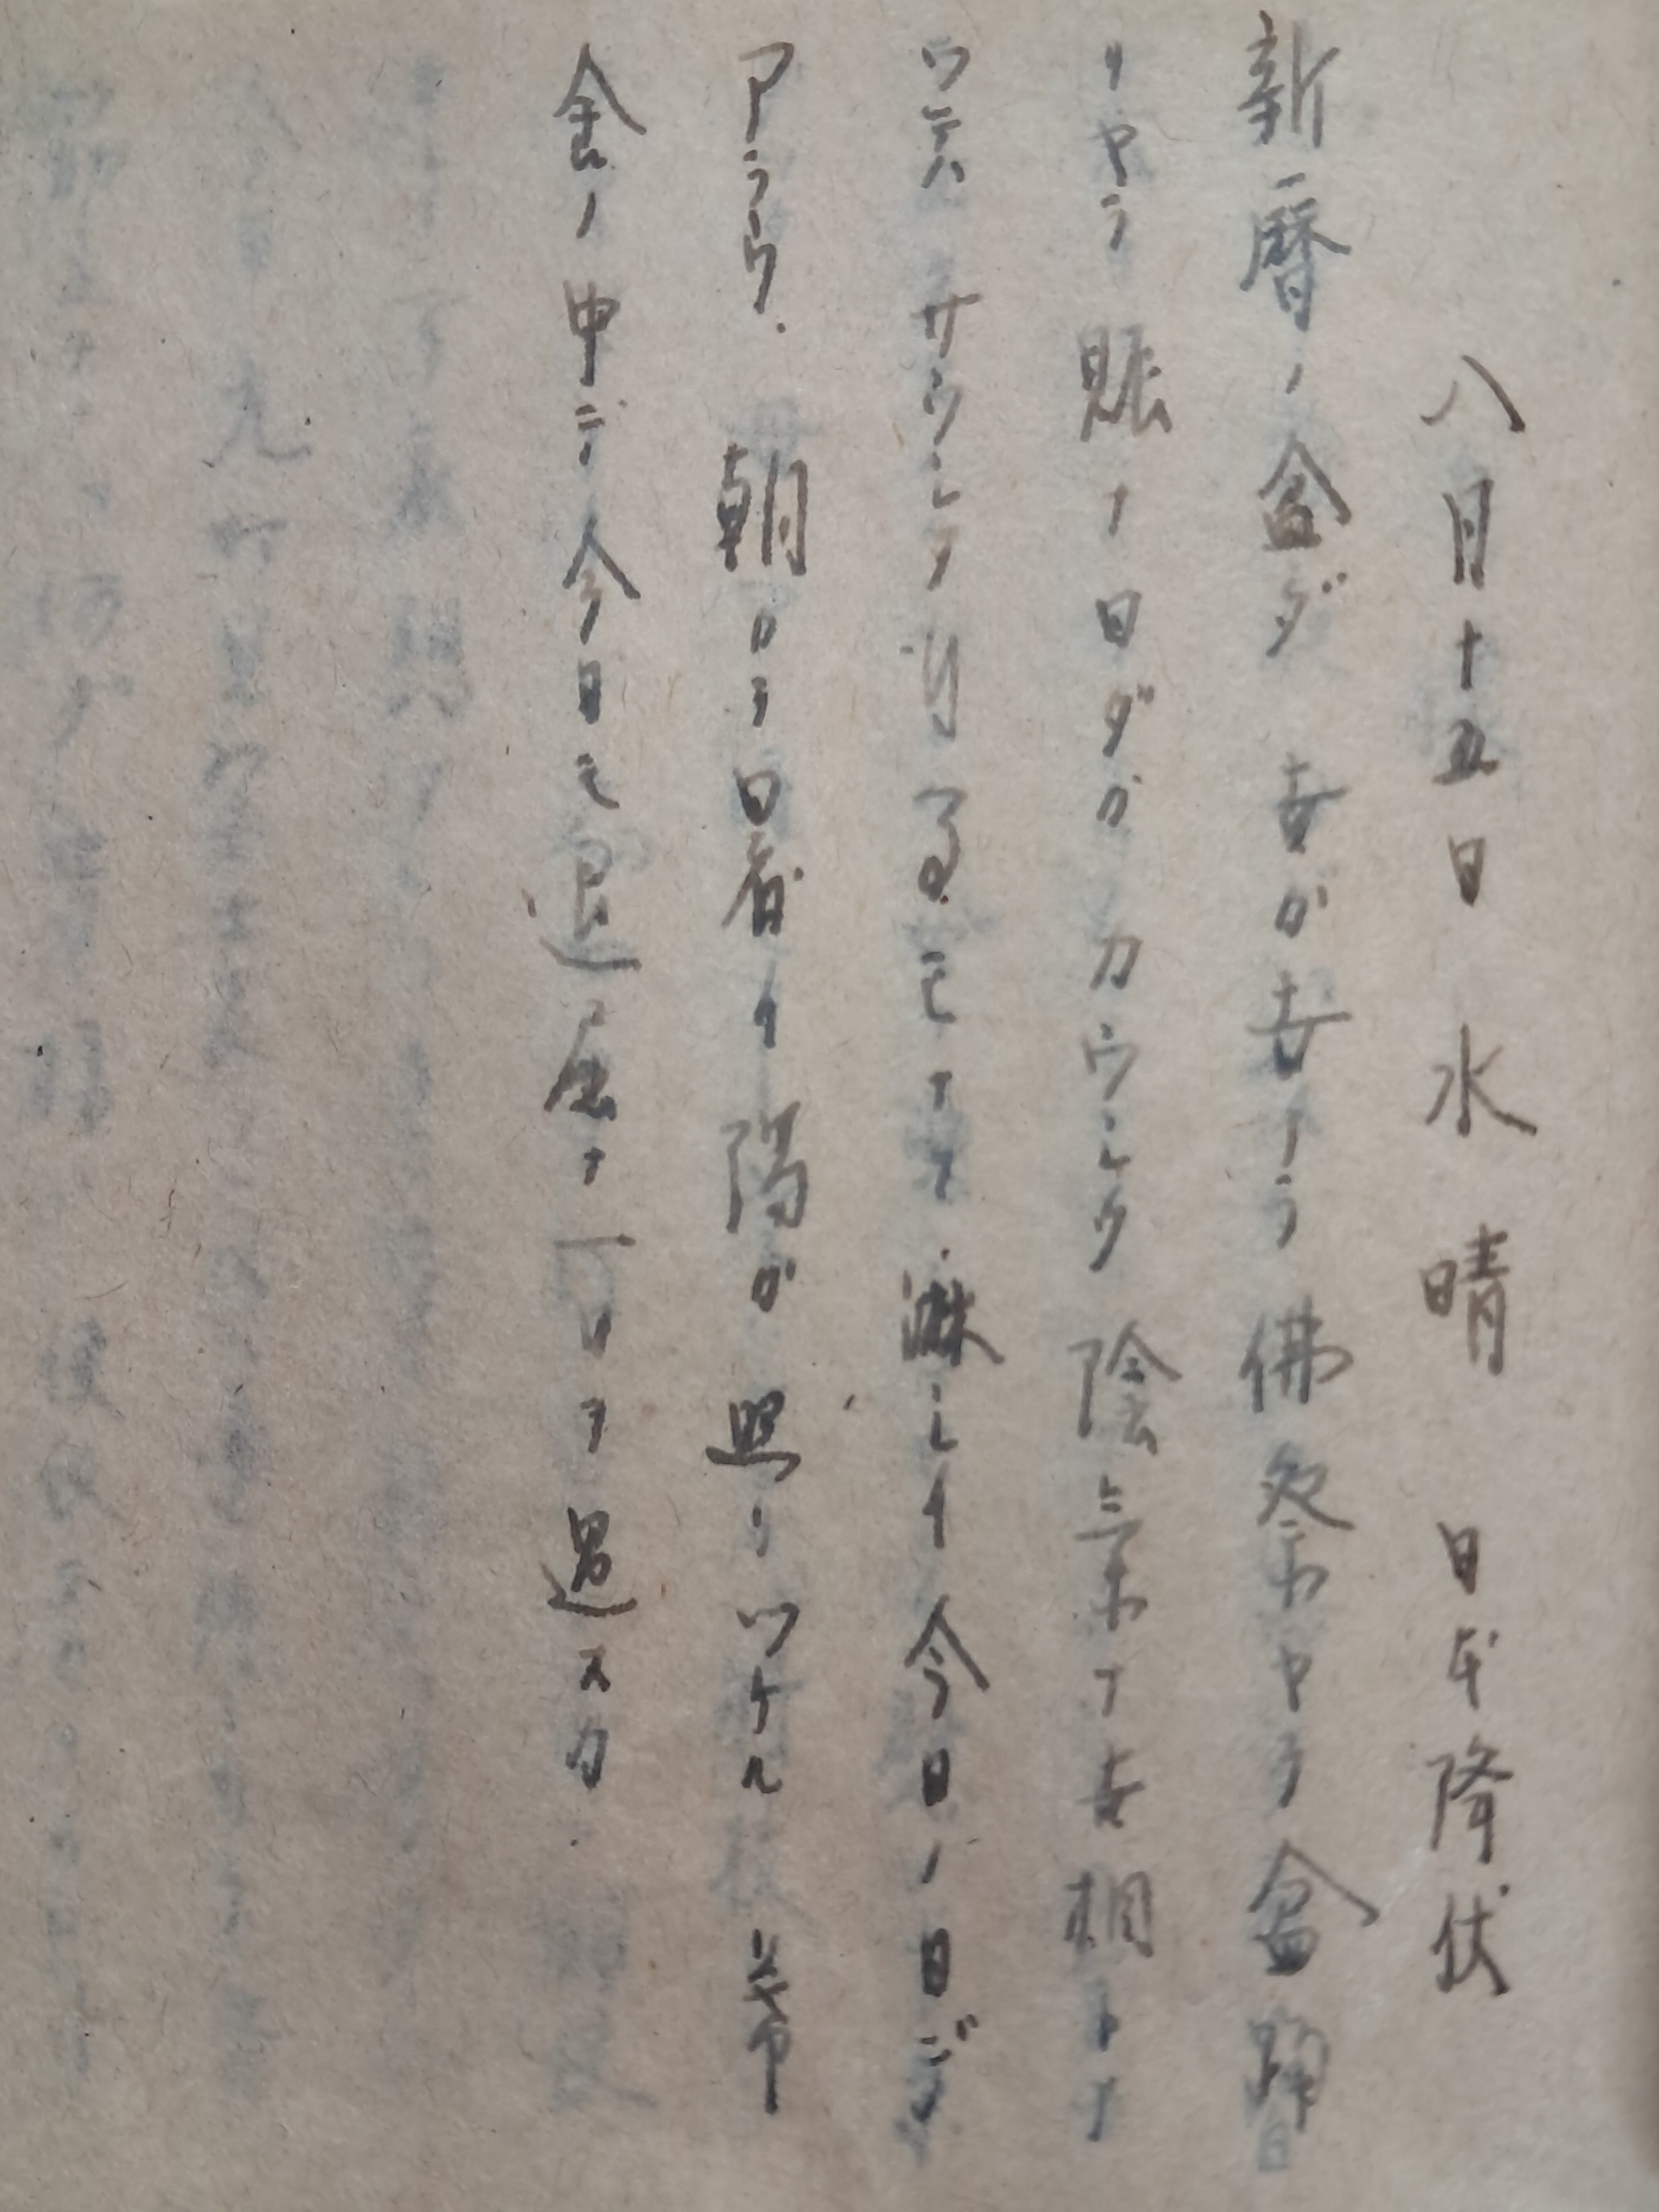 八月十五日 水 晴 日本降伏
新暦ノ盆ダ 去が去ナラ 佛祭ヤラ 盆踊
リヤラ 賑ナ日ダガ カウシタ 陰気ナ去相トナ
ツテハ サウシタ 行事モナク 淋シイ今日ノ日デ
アラウ. 朝カラ日暑イ 陽ガ 照リツケル 幕
舎ノ中デ今日モ退屈ナ一日ヲ過スカ.